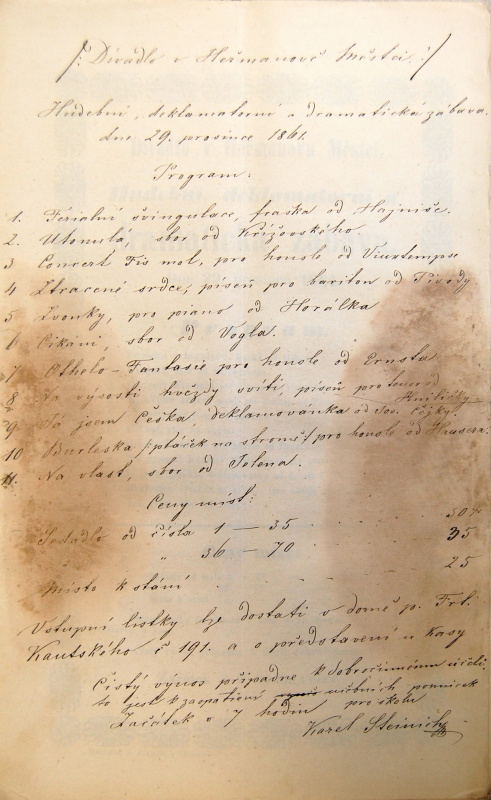 /: Divadlo v Heřmanově Městci. :/
Hudební, deklamatorní a dramatická zábava.
dne 29. prosince 1861.
Program:
1. Feriální švingulace, fraška od Hajniše.
2. Utonulá, sbor od Křížovského.
3 Concert Fis mol, pro housle od Vieuxtempse
4 Ztracené srdce, píseň pro bariton od Pivody
5 Zvonky, pro piano od Horálka
6 Cikáni, sbor od Vogla.
7 Othelo-Fantasie pro housle od Ernsta
8 Na výsosti hvězdy svítí, píseň pro tenor od
9 Já jsem Češka, deklamovánka od Jos.
10 Burleska /: ptáček na stromě :/ pro housle od Hausera.
11. Na vlast, sbor od Jelena.
Ceny míst:
Sedadlo od čísla 1 – 35 . . . 50
" 36 – 70 . . . 35
Místo k stání . . . 25
Vstupní lístky lze dostati v domě p. Frt.
Kautského č 191. a o představení u kasy
Čistý výnos připadne k dobročinnému účeli
to jest k zaopatření učebních pomůcek
Začátek o 7 hodin pro školu
Karel